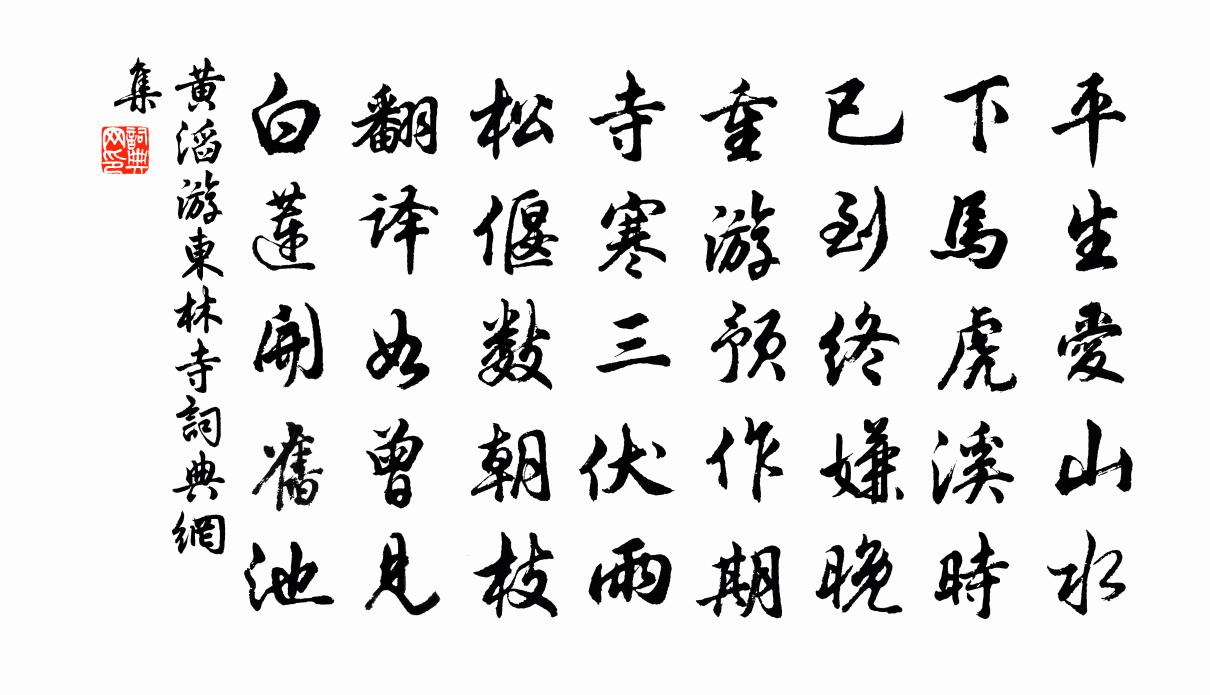 平生愛山水
下馬虎溪時
已到終嫌晚
重游預作期
寺寒三伏雨
松偃數朝枝
翻译如曾見
白蓮開舊池
黄滔游東林寺詞典網
集
詞典
网印